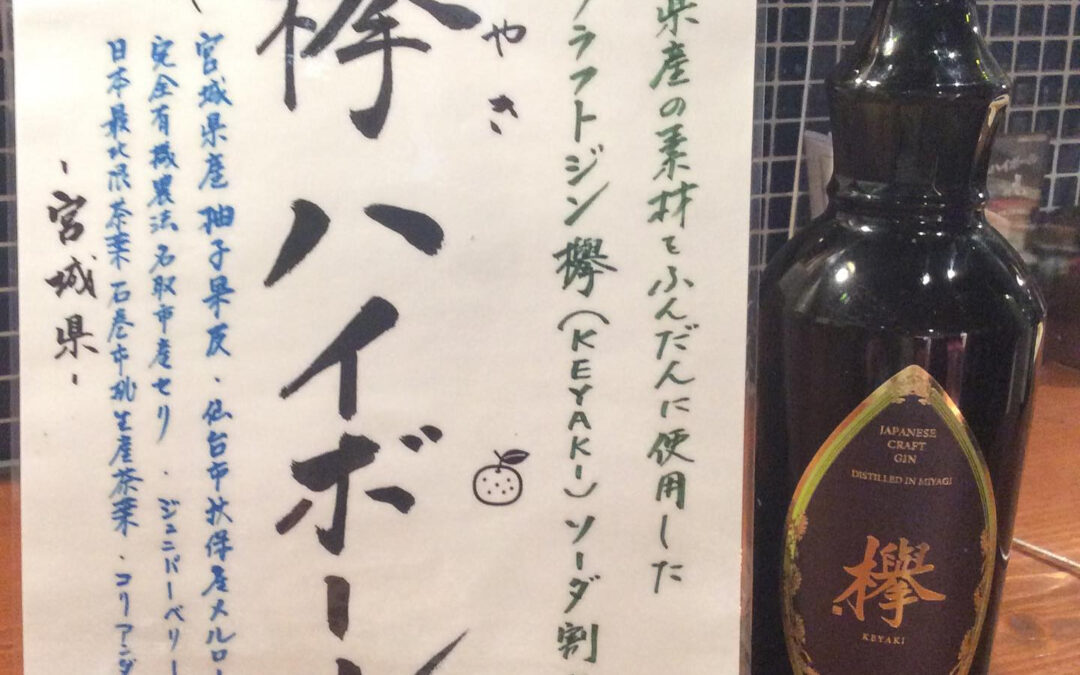 県産の素材をふんだんに使用した
クラフトジン欅(KEYAKI)ソーダ割
やき
欅ハイボール
宮城県産柚子果皮・仙台市秋保産メルロー
完全有機農法名取市産セリ・ジュニパーベリー
日本最北限茶葉石巻市桃生産茶葉・コリアンダ
-宮城県-
JAPANESE
CRAFT
GIN
DISTILLED IN MIYAGI
欅
KEYAKI